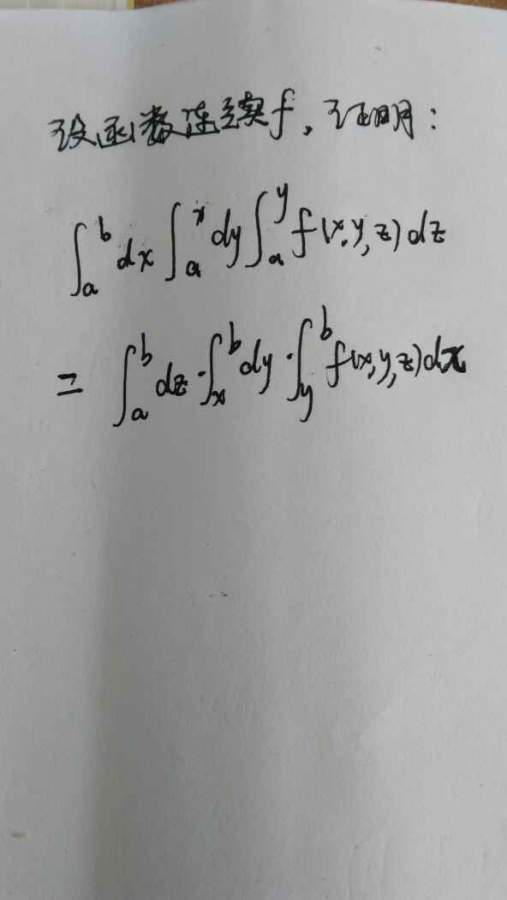 设函数连续f,证明:
∫_a^b dx ∫_a^x dy ∫_a^y f(x,y,z)dz
= ∫_a^b dz·∫_x^b dy·∫_y^b f(x,y,z)dx